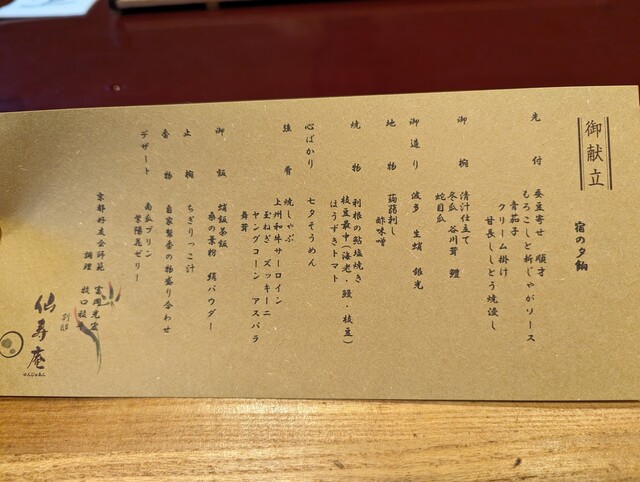 御献立
宿の夕餉
先付
蚕豆寄せ 順才
もろこしと新じゃがソース
青茄子
クリーム掛け
甘長ししとう焼浸し
御椀
清汁仕立て
冬瓜 谷川茸 鱧
蛇目瓜
御造り
波多 生蛸 銀光
地物
蒟蒻刺し
酢味噌
焼物
利根の鮎塩焼き
枝豆最中(海老・鰻・枝豆)
ほうずきトマト
心ばかり
七夕そうめん
強肴
焼しゃぶ
上州和牛サーロイン
玉ねぎ ズッキーニ
ヤングコーン アスパラ
舞茸
御飯
蛸飯茶飯
桑の葉粉 絹パウダー
止椀
ちぎりっこ汁
香物
自家製香の物盛り合わせ
デザート
南瓜プリン
紫陽花ゼリー
京都好友会師範
調理
富岡光宏
別邸
仙寿庵
せんじゅあん